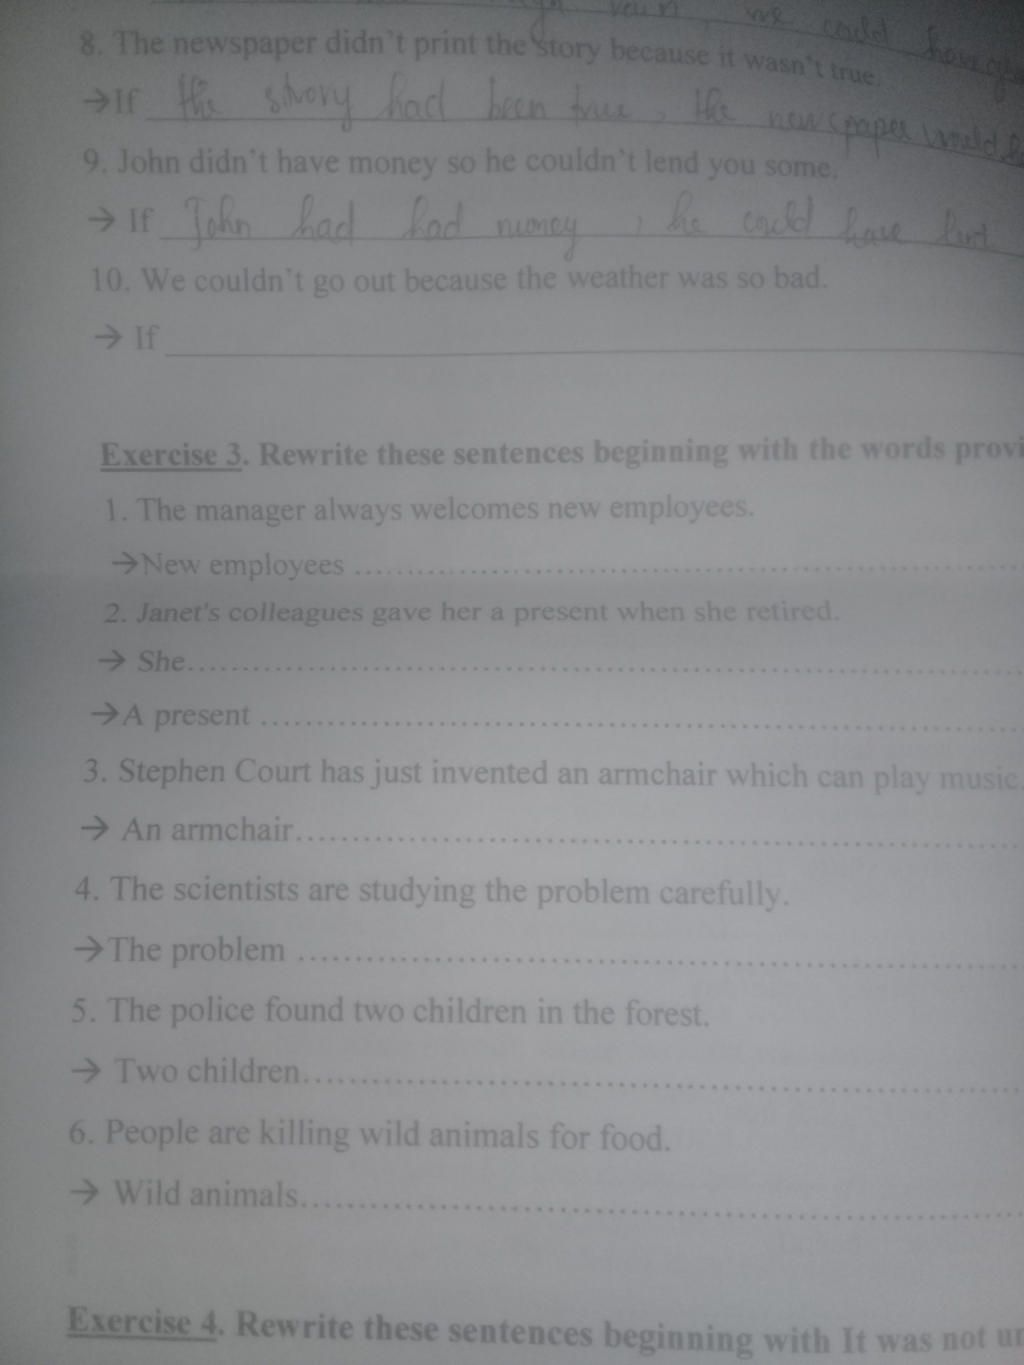 rain, we could have
8. The newspaper didn't print the story because it wasn't true.
→If the strory had been true, the newspaper would
9. John didn't have money so he couldn't lend you some.
→ If John had had money, he could have lent
10. We couldn't go out because the weather was so bad.
→ If
Exercise 3. Rewrite these sentences beginning with the words provi
1. The manager always welcomes new employees.
→New employees ................................
2. Janet's colleagues gave her a present when she retired.
→ She................................
→A present ................................
3. Stephen Court has just invented an armchair which can play music.
→ An armchair................................
4. The scientists are studying the problem carefully.
→The problem ................................
5. The police found two children in the forest.
→ Two children................................
6. People are killing wild animals for food.
→ Wild animals................................
Exercise 4. Rewrite these sentences beginning with It was not un